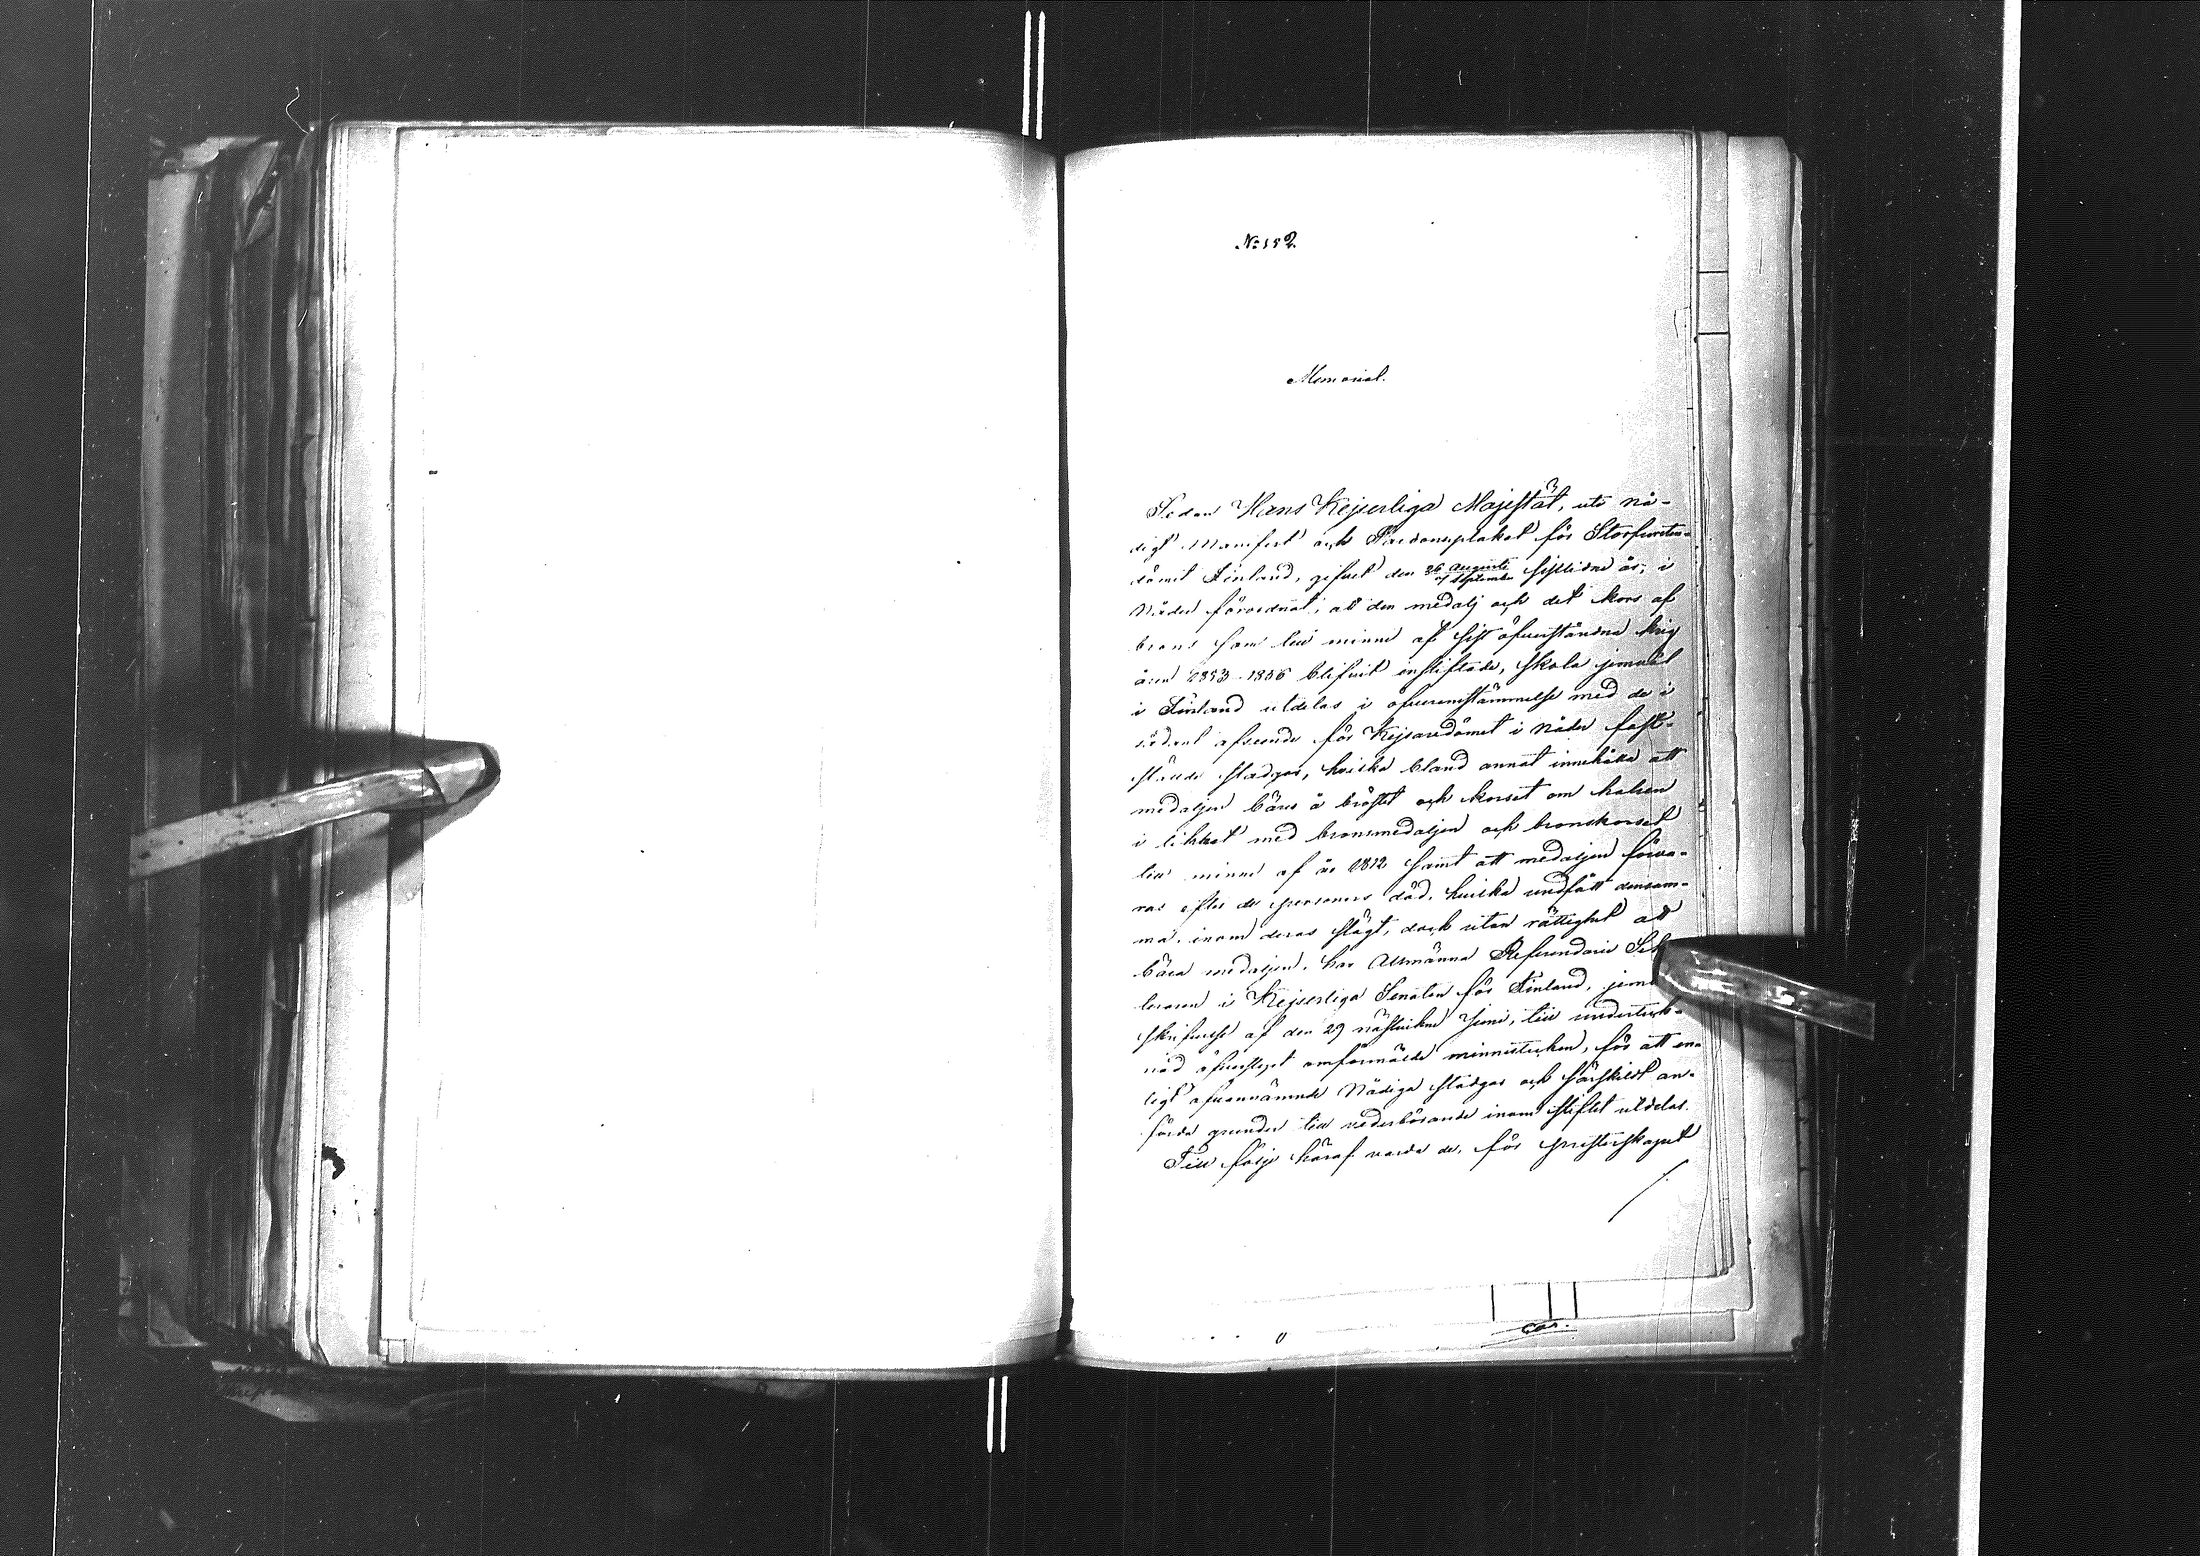 No: 182.
Memorial.
Sedan Hans Kejserliga Majestät, uti nå-
digt Manifest och Pardonsplakat för Storfursten-
dömet Finland, gifvet den 26 Augusti / 7 September sistlidne år, i
Nåder förordnat, att den medalj och det kors af
brons som till minne af sist öfverståndna krig
åren 1853-1856 blifvit instiftade, skola jemväl
i Finland utdelas i öfverensstämmelse med de i
sådant afseende för Kejsaredömet i Nåder fast-
stälde stadgar, hvilka bland annat innehålla att
medaljen bäres å bröstet och korset om halsen
i likhet med bronsmedaljen och bronskorset
till minne af år 1812 samt att medaljen förva-
ras efter de personers död, hvilka undfått densam-
ma, inom deras slägt, dock utan rättighet att
bära medaljen, har Allmänna Referendarie Sek
leraren i Kejserliga Senaten för Finland, jemte
skrifvelse af den 29 nästvikne Juni, till underteck-
nad öfversändt omförmälde minnestecken, för att en-
ligt ofvannämnde Nådiga stadgar och särskildt an-
förda grunder till vederbörande inom stiftet utdelas.
Till följe häraf varda de, för presterskapet